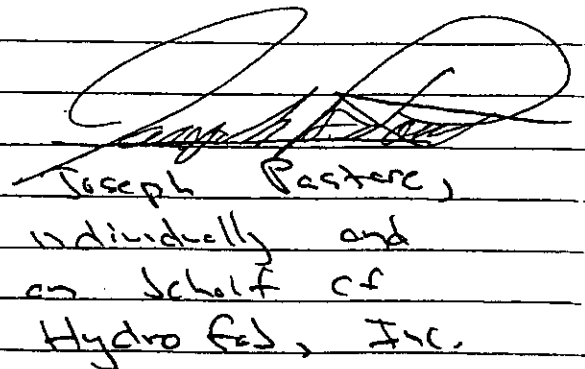 Joseph Pastore,
individually and
on behalf of
Hydro Fab, Inc.